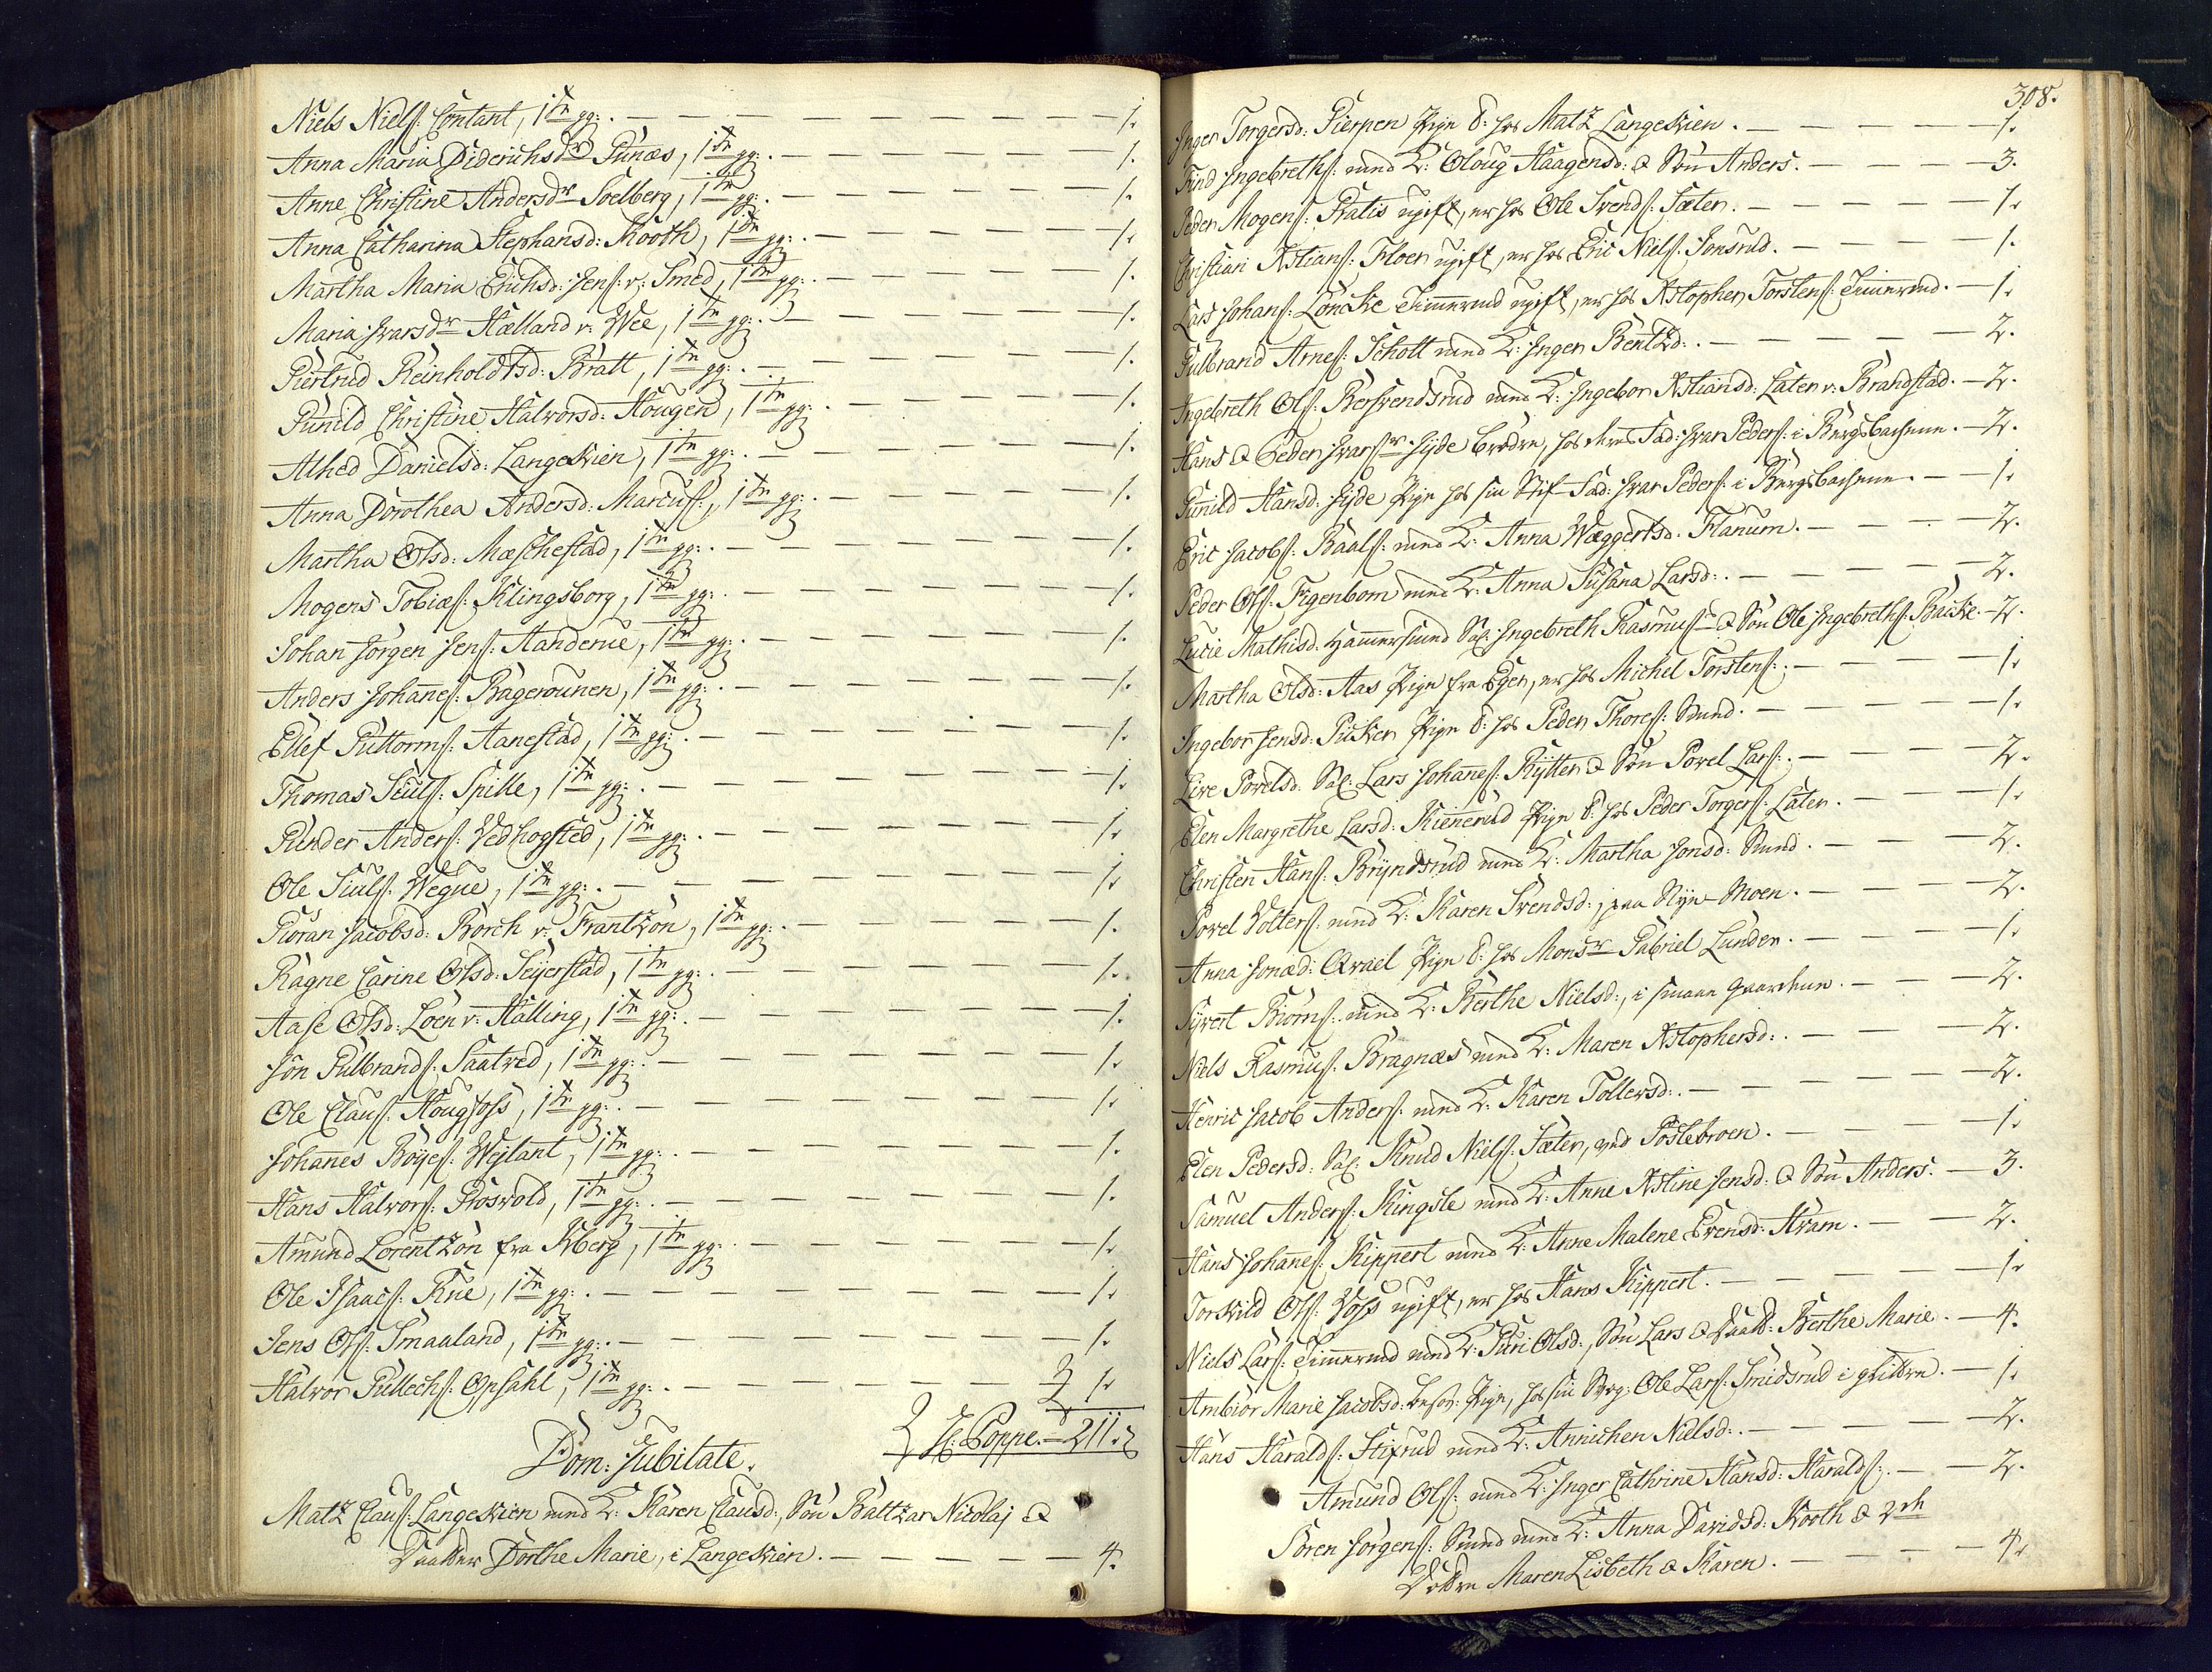 Niels Niels: Contant, 1ste gg: . — — — — 1.
Anna Maria Diderichsdr Gunæs, 1ste gg: . — — — — 1.
Anne Christine Andersdr Soelberg, 1ste gg: . — — — — 1.
Anna Catharina Stephansd: Kooth, 1ste gg: . — — — — 1.
Martha Maria Erichsd: Jens: v: Smed, 1ste gg: . — — — — 1.
Maria Ivarsdr Hælland v: Wee, 1ste gg: . — — — — 1.
Giertrud Reinholdtsd: Bratt, 1ste gg: . — — — — 1.
Gunild Christine Halvorsd: Hougen, 1ste gg: . — — — — 1.
Alhed Danielsd: Langeskien, 1ste gg: . — — — — 1.
Anna Dorothea Andersd: Marcus:, 1ste gg: . — — — — 1.
Martha Olsd: Mæschestad, 1ste gg: . — — — — 1.
Mogens Tobiæs: Klingsborg, 1ste gg: . — — — — 1.
Johan Jørgen Jens: Handerue, 1ste gg: . — — — — 1.
Anders Johannes: Bagerounen, 1ste gg: . — — — — 1.
Ellef Guttorms: Aanestad, 1ste gg: . — — — — 1.
Thomas Siuls: Spille, 1ste gg: . — — — — 1.
Gunder Anders: Vedhogsted, 1ste gg: . — — — — 1.
Ole Siuls: Wegne, 1ste gg: . — — — — 1.
Giøran Jacobsd: Borch v: Frantzøn, 1ste gg: . — — — — 1.
Ragne Carine Olsd: Seyerstad, 1ste gg: . — — — — 1.
Aase Olsd: Loen v: Halling, 1ste gg: . — — — — 1.
Jon Gulbrands: Saatved, 1ste gg: . — — — — 1.
Ole Claus: Hougfoss, 1ste gg: . — — — — 1.
Johanes Bøyes: Wejlant, 1ste gg: . — — — — 1.
Hans Halvors: Groswold, 1ste gg: . — — — — 1.
Amund Lorentzøn fra Kberg, 1ste gg: . — — — — 1.
Ole Isaacs: Rue, 1ste gg: . — — — — 1.
Jens Ols: Smaaland, 1ste gg: . — — — — 1.
Halvor Gullechs: Opsahl, 1ste gg: . — — — — 1.
H: Poppe. — 211.
Dom: Jubilate.
Matz Claus: Langeskien med K: Karen Clausd:, Søn Baltzar Nicolaj &
Daatter Dorthe Marie, i Langeskien. — — — — 4.
308.
Inger Torgersd: Gierpen Pige t: hos Matz Langeskien. — — — — 1.
Find Ingebreths: med K: Oloug Haagensd: & Søn Anders. — — — — 3.
Peder Mogens: Gratis ugift, er hos Ole Svends: Sæter. — — — — 1.
Christian Kstians: Floer ugift, er hos Eric Niels: Jonsrud. — — — — 1.
Lars Johans: Loncke Timmerud ugift, er hos Kstopher Torstens: Timerud. — 1.
Gulbrand Arnes: Schott med K: Inger Bentzd: . — — — — 2.
Ingebreth Ols: Bersvendsrud med K: Ingebor Kstiansd: Sater v: Brandstad. — 2.
Hans & Peder Ivarsr Hyde brødre, hos deres Fad: Ivar Peders: i Bergsbachenne. — 2.
Gunild Hansd: Hyde Pige hos sin Stif-Fad: Ivar Peders: i Bergsbachenne. — 1.
Eric Jacobs: Baals: med K: Anna Wæggertsd: Flanum. — — — — 2.
Peder Ols: Figenbom med K: Anna Susana Larsd: . — — — — 2.
Lucie Mathisd: Hammersmed Sal: Ingebreth Rasmus: & Søn Ole Ingebreths: Backe. — 2.
Martha Olsd: Aas Pige fra Eger, er hos Michel Torstens: . — — — 1.
Ingebor Jensd: Gucker Pige t: hos Peder Thores: Smed. — — — 1.
Live Povelsd: Sal: Lars Johannes: Rytter & Søn Povel Lars: . — — — 2.
Elen Margrethe Larsd: Kiennerud Pige t: hos Peder Torgers: Sater. — — 1.
Christen Hans: Bryndsrud med K: Martha Jonsd: Smed. — — — 2.
Povel Wolters: med K: Karen Svendsd:, paa Nye-Moen. — — — 2.
Anna Jonæd: Qvael Pige t: hos Monsr Gabriel Lunder. — — — 1.
Syvert Biørns: med K: Berthe Nielsd:, i smaae Gaardene. — — — 2.
Niels Rasmus: Bragnæs med K: Maren Kstophersd: . — — — 2.
Henric Jacob Anders: med K: Karen Tollersd: . — — — — 2.
Elen Pedersd: Sal: Knud Niels: Sæter, ved Postebroen. — — — 1.
Samuel Anders: Kingste med K: Anne Kstine Jensd: & Søn Anders. — 3.
Hans Johannes: Kippert med K: Anne Malene Evensd: Hvam. — — 2.
Torkild Ols: Voss ugift, er hos Hans Kippert. — — — — 1.
Niels Lars: Timmerud med K: Guri Olsd:, Søn Lars & Daatt: Berthe Marie. — 4.
Ambiør Marie Jacobsd: besov: Pige, hos sin Svog: Ole Lars: Smidsrud i Hytten. — 1.
Hans Haralds: Stifrud med K: Annichen Nielsd: . — — — 2.
Amund Ols: med K: Inger Cathrine Hansd: Haralds: . — — 2.
Søren Jørgens: Smed med K: Anna Davidsd: Kooth & 2de
Døttre Maren Lisbeth & Karen. — — — — 4.